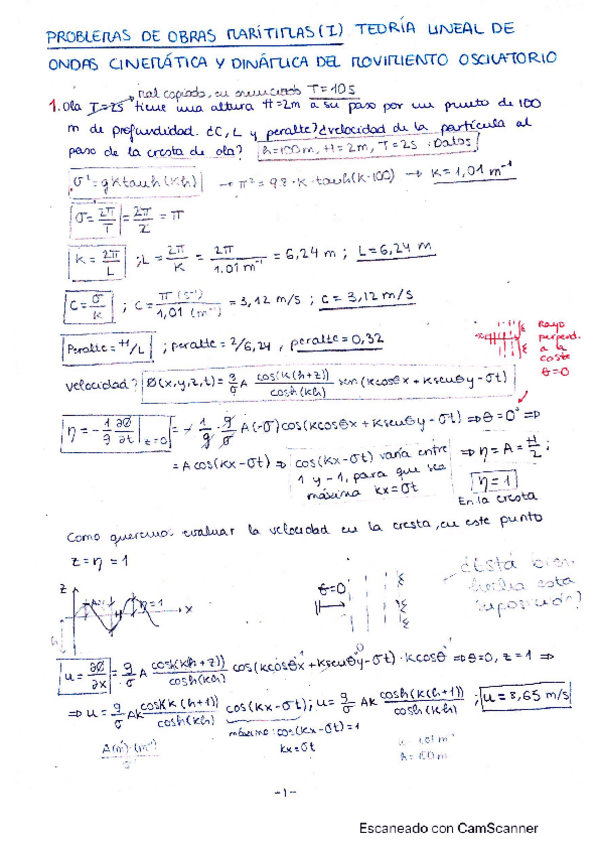 PROBLEMAS DE OBRAS MARÍTIMAS (I) TEORÍA LINEAL DE
ONDAS CINEMÁTICA Y DINÁMICA DEL MOVIMIENTO OSCILATORIO
mal copiado, en enunciado T=10s
1. Ola T=2s tiene una altura H=2m a su paso por un punto de 100
m de profundidad. ¿C, L y peralte? ¿velocidad de la partícula al
paso de la cresta de ola? h=100m, H=2m, T=2s :Datos
σ²=gKtauh(Kh) → π²=9'8·K·tauh(K·100) → K=1,01 m⁻¹
σ=2π/T=2π/2=π
K=2π/L ; L=2π/K=2π/1,01m⁻¹=6,24 m ; L=6,24 m
C=σ/K ; C=π(s⁻¹)/1,01(m⁻¹)=3,12 m/s ; C=3,12 m/s
Peralte=H/L ; peralte=2/6,24, peralte=0,32
Rayo
perpend.
a la
costa
θ=0
velocidad? Ø(x,y,z,t)=g/σ A cos(K(h+z))/cosh(Kh) sen(Kcosθx+Ksenθy-σt)
η=-1/g ∂Ø/∂t |z=0 = -1/g·g/σ A(-σ)cos(Kcosθx+Ksenθy-σt) ⇒ θ=0° ⇒
=Acos(Kx-σt) ⇒ cos(Kx-σt) varía entre
1 y -1, para que sea
máxima Kx=σt
⇒ η=A=H/2 ;
η=1
En la cresta
Como queremos evaluar la velocidad en la cresta, en este punto
z=η=1
z
η=1
x
h
θ=0
¿Está bien
hecha esta
suposición?
u=∂Ø/∂x = g/σ A cosh(K(h+z))/cosh(Kh) cos(Kcosθx+Ksenθy-σt)·Kcosθ ⇒ θ=0, z=1 ⇒
⇒ u=g/σ AK cosh(K(h+1))/cosh(Kh) cos(Kx-σt) ; u=g/σ AK cosh(K(h+1))/cosh(Kh) ; u=8,65 m/s
máximo: cos(Kx-σt)=1
Kx=σt
A(m)·(m⁻¹)
-1-
Escaneado con CamScanner